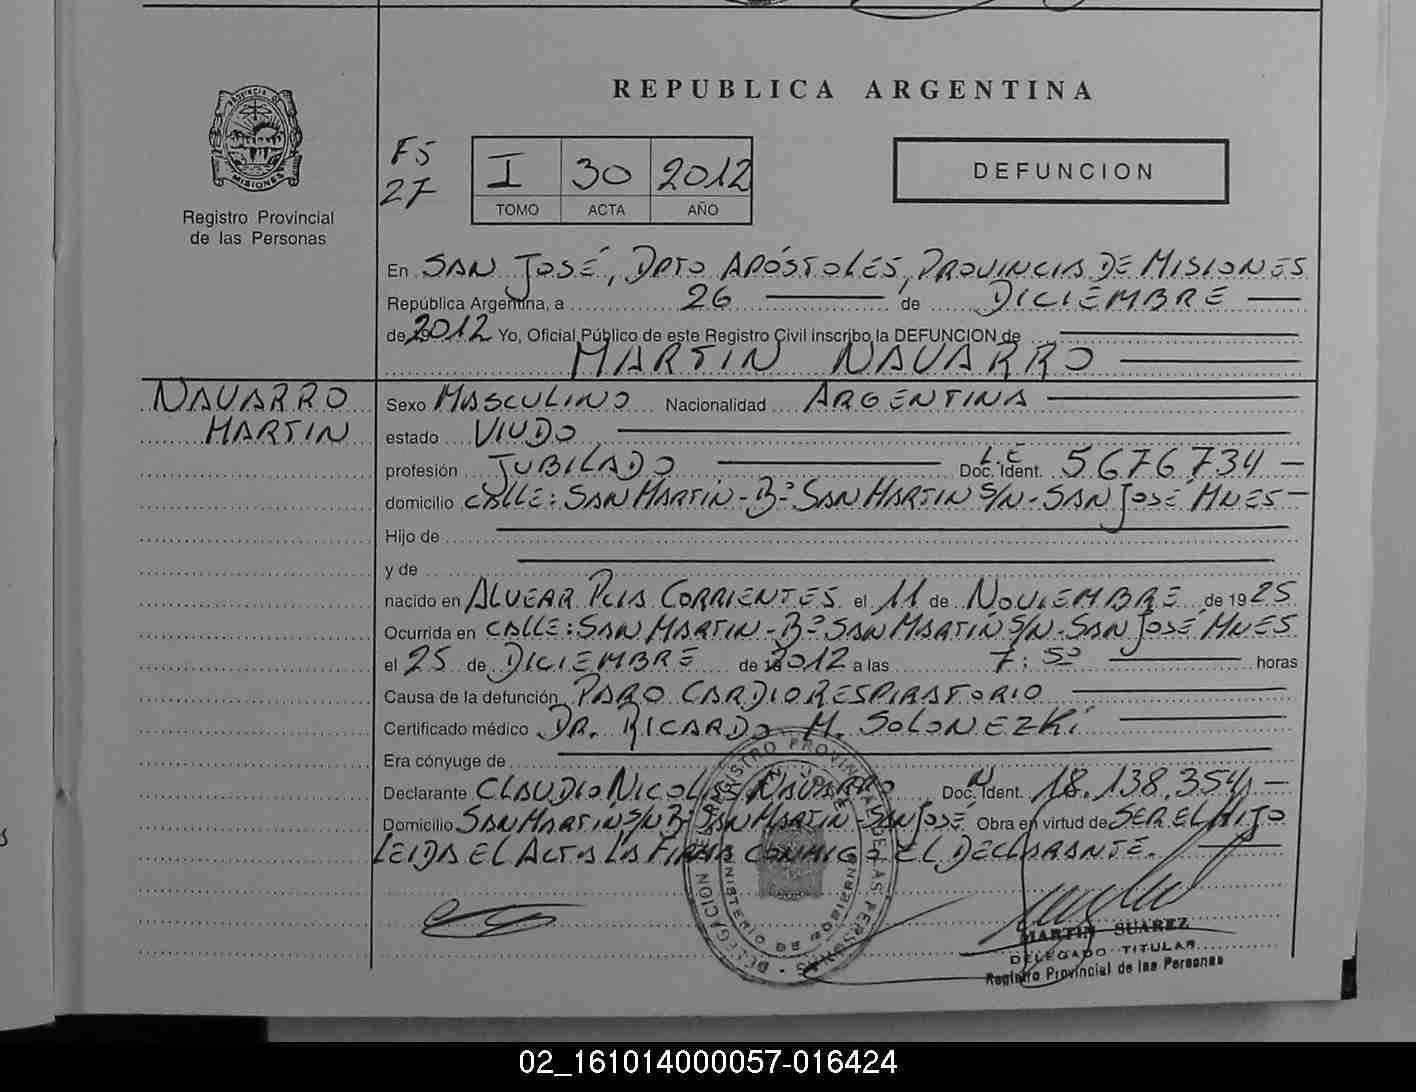 REPUBLICA ARGENTINA
PROVINCIA DE
MISIONES
Registro Provincial
de las Personas
F5
27
I 30 2012
TOMO ACTA AÑO
DEFUNCION
En SAN JOSÉ, DPTO APÓSTOLES, PROVINCIA DE MISIONES
República Argentina, a 26 de DICIEMBRE
de 2012 Yo, Oficial Público de este Registro Civil inscribo la DEFUNCION de
MARTIN NAVARRO
NAVARRO
MARTIN
Sexo MASCULINO Nacionalidad ARGENTINA
estado VIUDO
profesión JUBILADO L.E Doc. Ident. 5676734
domicilio CALLE: SAN MARTIN - Bº SAN MARTIN S/N - SAN JOSÉ MNES
Hijo de
y de
nacido en ALVEAR PCIA CORRIENTES el 11 de NOVIEMBRE de 1925
Ocurrida en CALLE: SAN MARTIN - Bº SAN MARTIN S/N - SAN JOSÉ MNES
el 25 de DICIEMBRE de 2012 a las 7:50 horas
Causa de la defunción PARO CARDIORESPIRATORIO
Certificado médico DR. RICARDO M. SOLONEZKI
Era cónyuge de
Declarante CLAUDIO NICOLAS NAVARRO Doc. Ident. 18.138.354
Domicilio SAN MARTIN S/N Bº SAN MARTIN - SAN JOSÉ Obra en virtud de SER EL HIJO
LEIDA EL ACTA LA FIRMA CONMIGO EL DECLARANTE.
DELEGACION REGISTRO PROVINCIAL DE LAS PERSONAS
MINISTERIO DE GOBIERNO
MARTIN SUAREZ
DELEGADO TITULAR
Registro Provincial de las Personas
02_161014000057-016424